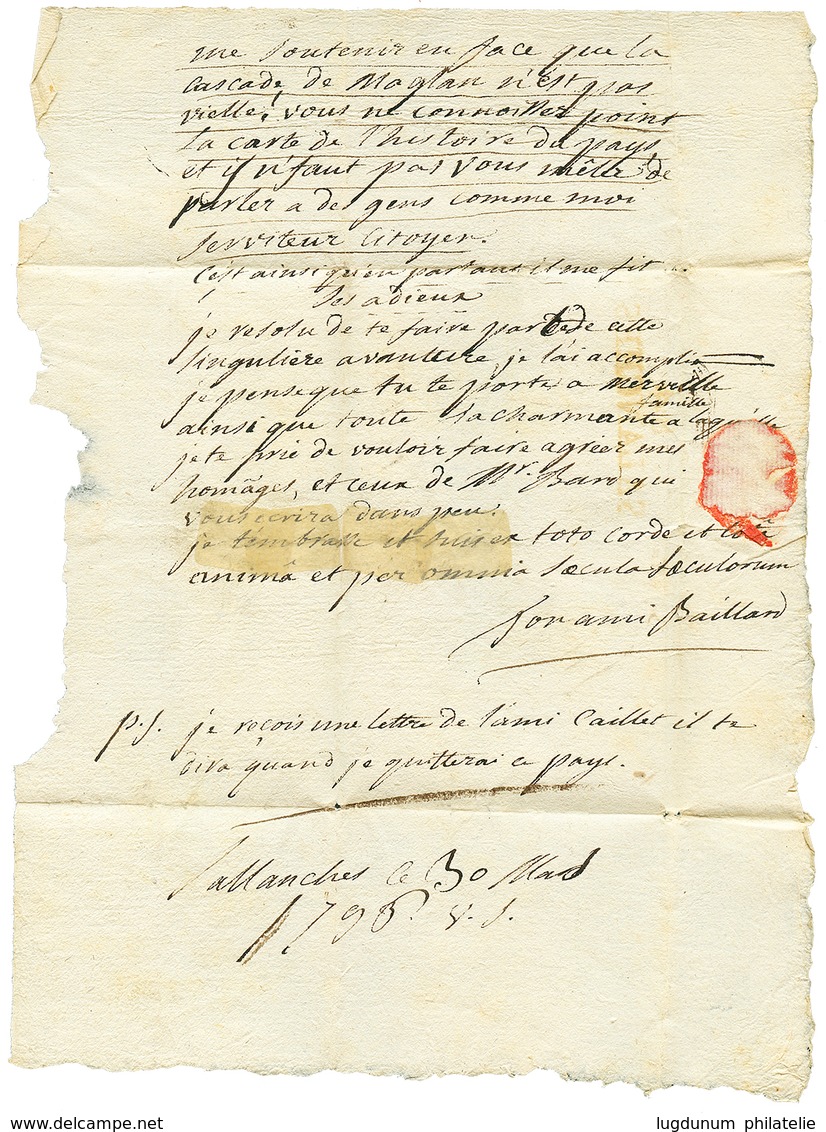 me Soutenir en face que la
cascade, de Maglan n'est pas
vielle! vous ne connoisses point
la carte de l'histoire du pays,
et il n'faut pas vous mêler de
parler a des gens comme moi
Serviteur Citoyen.
C'est ainsi qu'en partant il me fit
Ses adieux
je resolu de te faire part de cette
Singulière avanture, je l'ai accomplie
je pense que tu te porte a merveille
famille
ainsi que toute la charmante a laquelle
je te prie de vouloir faire agréer mes
homâges, et ceux de Mr. Bard qui
vous ecrira dans peu.
je t'embrasse et suis ex toto corde et totâ
animâ et per omnia Sæcula Sæculorum
Ton ami Baillard
p.s. je reçois une lettre de l'ami Caillet il te
dira quand je quitterai ce pays.
Sallanches le 30 Mars
1796. v. s.
delcampe.net
lugdunum philatelie